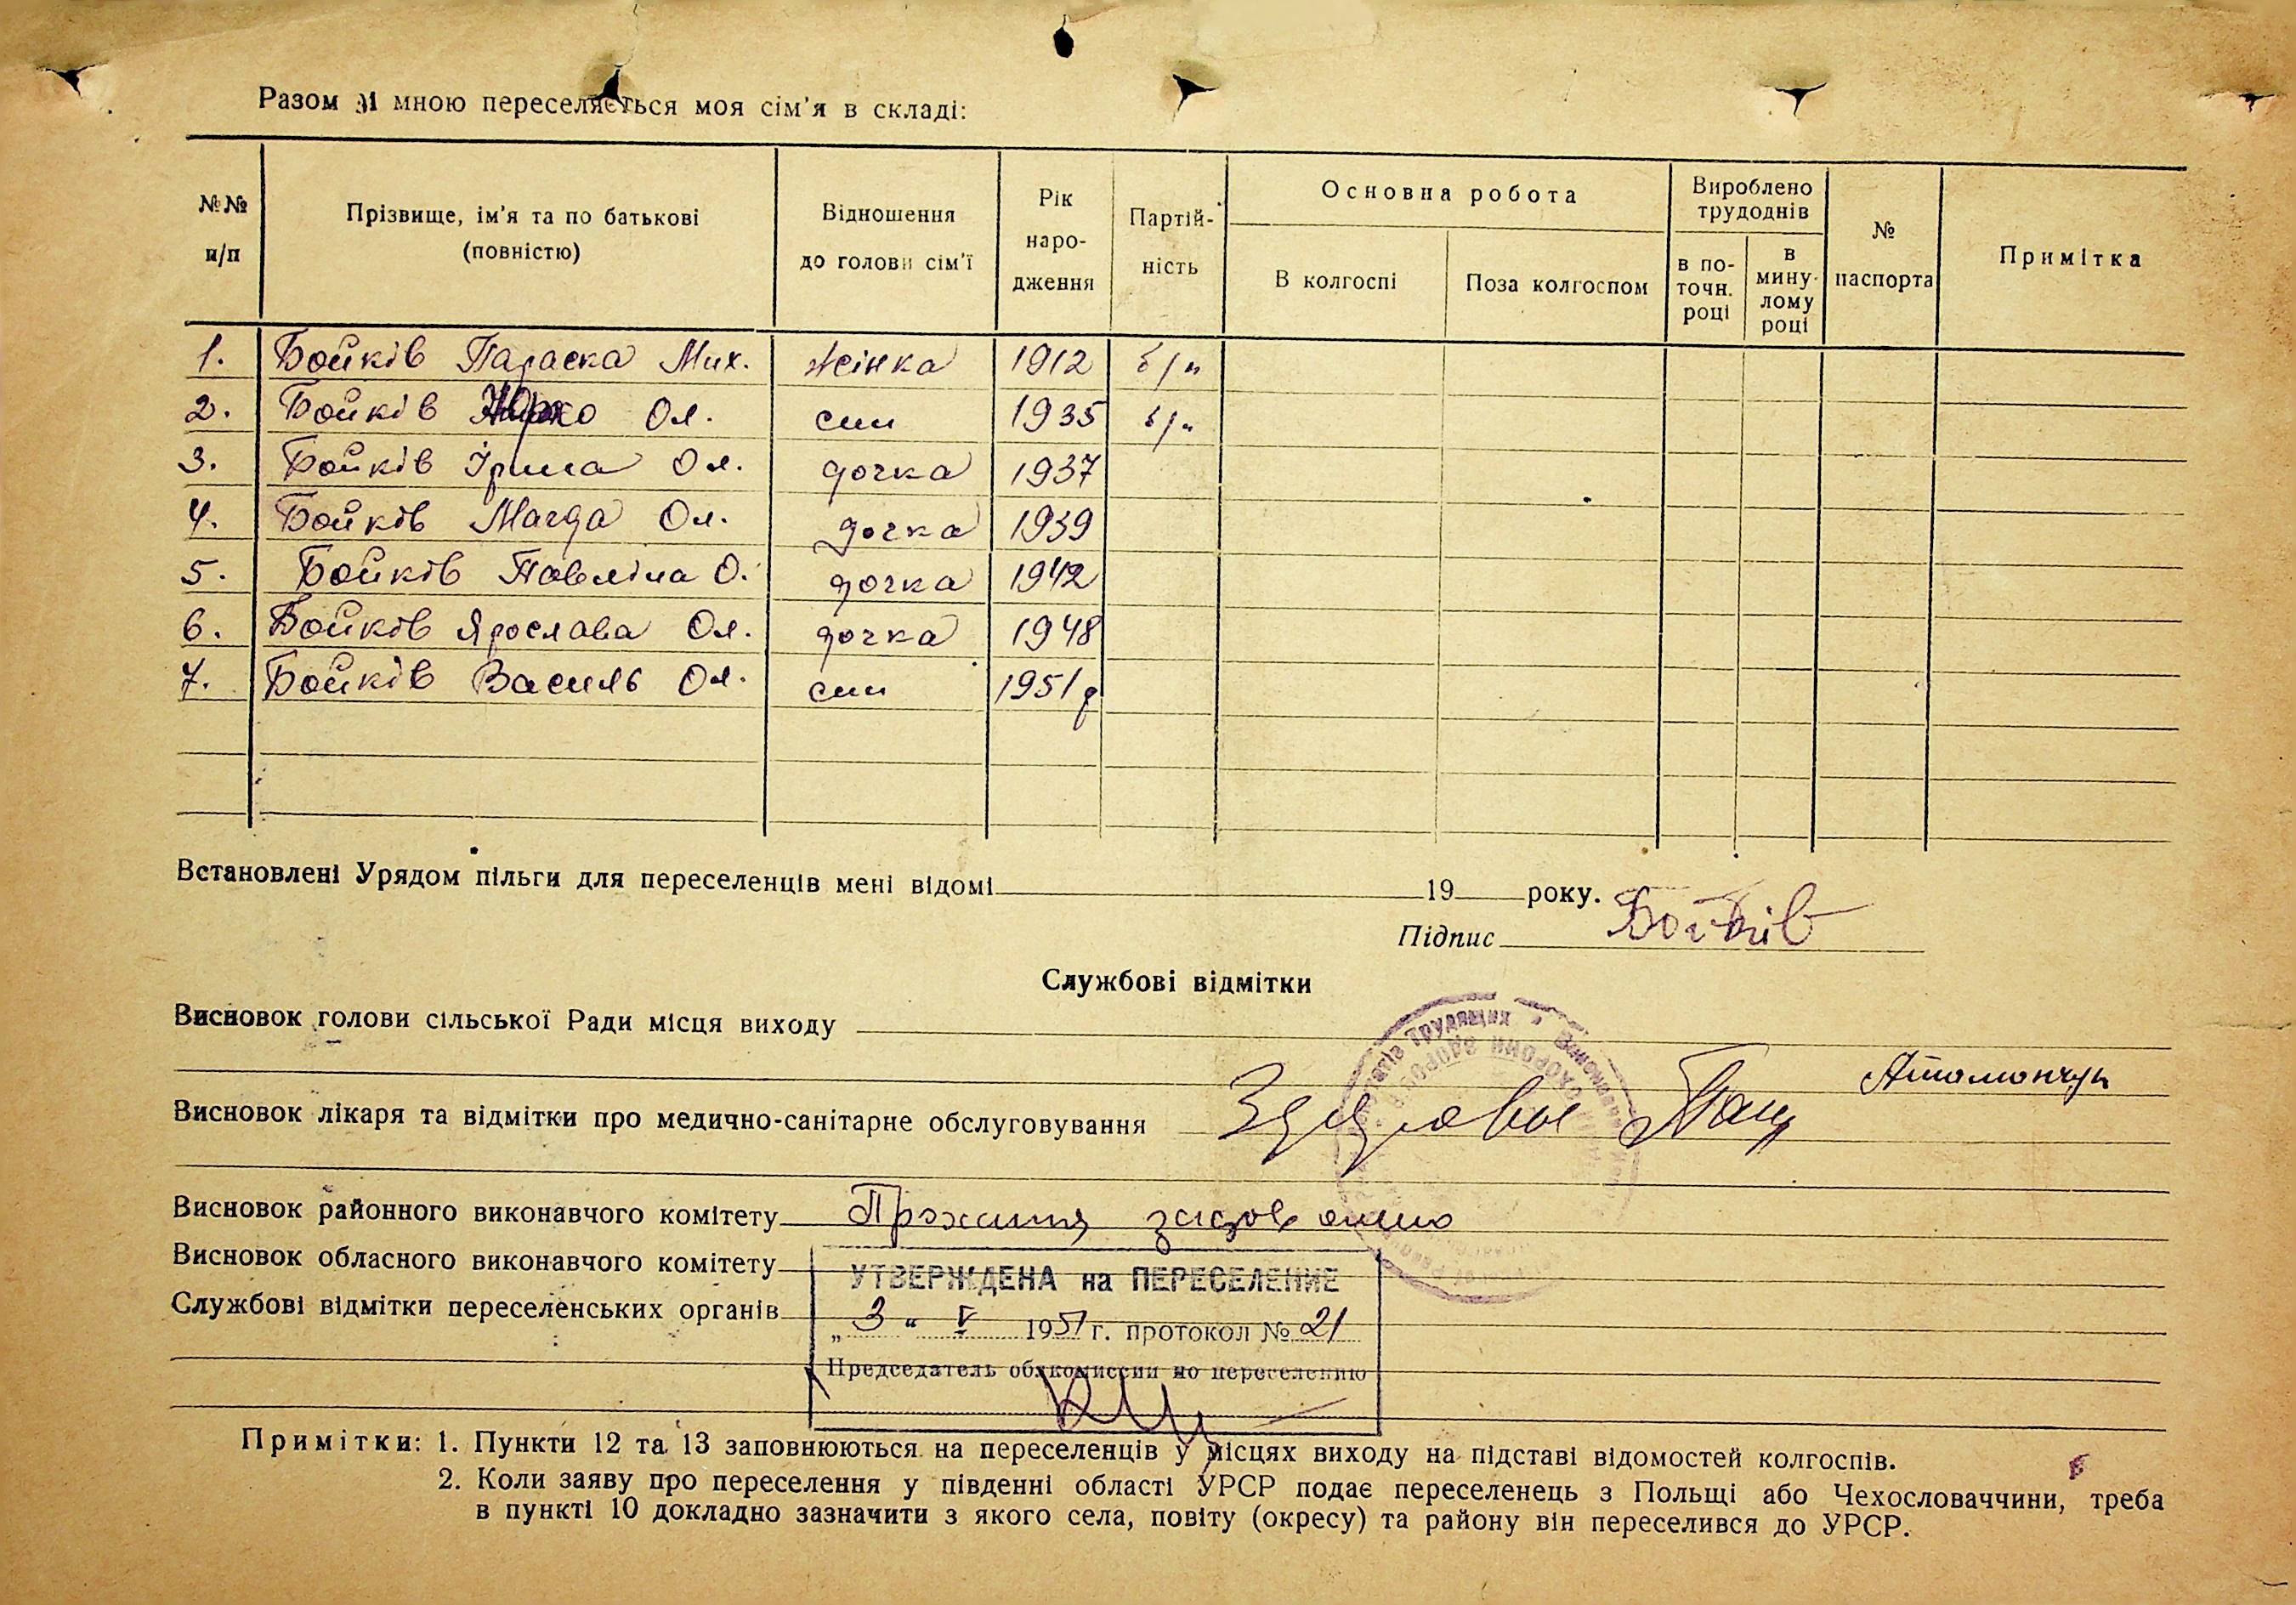 Разом зі мною переселяється моя сім'я в складі:
№№ п/п
Прізвище, ім'я та по батькові (повністю)
Відношення до голови сім'ї
Рік наро-дження
Партій-ність
Основна робота
В колгоспі
Поза колгоспом
Вироблено трудоднів
в по-точн. році
в мину-лому році
№ паспорта
Примітка
1. Бойків Параска Мих. жінка 1912 б/п
2. Бойків Юрко Ол. син 1935 б/п
3. Бойків Ірина Ол. дочка 1937
4. Бойків Магда Ол. дочка 1939
5. Бойків Павліна О. дочка 1942
6. Бойків Ярослава Ол. дочка 1948
7. Бойків Василь Ол. син 1951 р
Встановлені Урядом пільги для переселенців мені відомі 19 року.
Підпис Бойків
Службові відмітки
Висновок голови сільської Ради місця виходу
Висновок лікаря та відмітки про медично-санітарне обслуговування
Висновок районного виконавчого комітету Прохання задовольнити
Висновок обласного виконавчого комітету
УТВЕРЖДЕНА на ПЕРЕСЕЛЕНИЕ
Службові відмітки переселенських органів
„3" V 1951 г. протокол № 21
Председатель облкомиссии по переселению
Примітки: 1. Пункти 12 та 13 заповнюються на переселенців у місцях виходу на підставі відомостей колгоспів.
2. Коли заяву про переселення у південні області УРСР подає переселенець з Польщі або Чехословаччини, треба
в пункті 10 докладно зазначити з якого села, повіту (окресу) та району він переселився до УРСР.